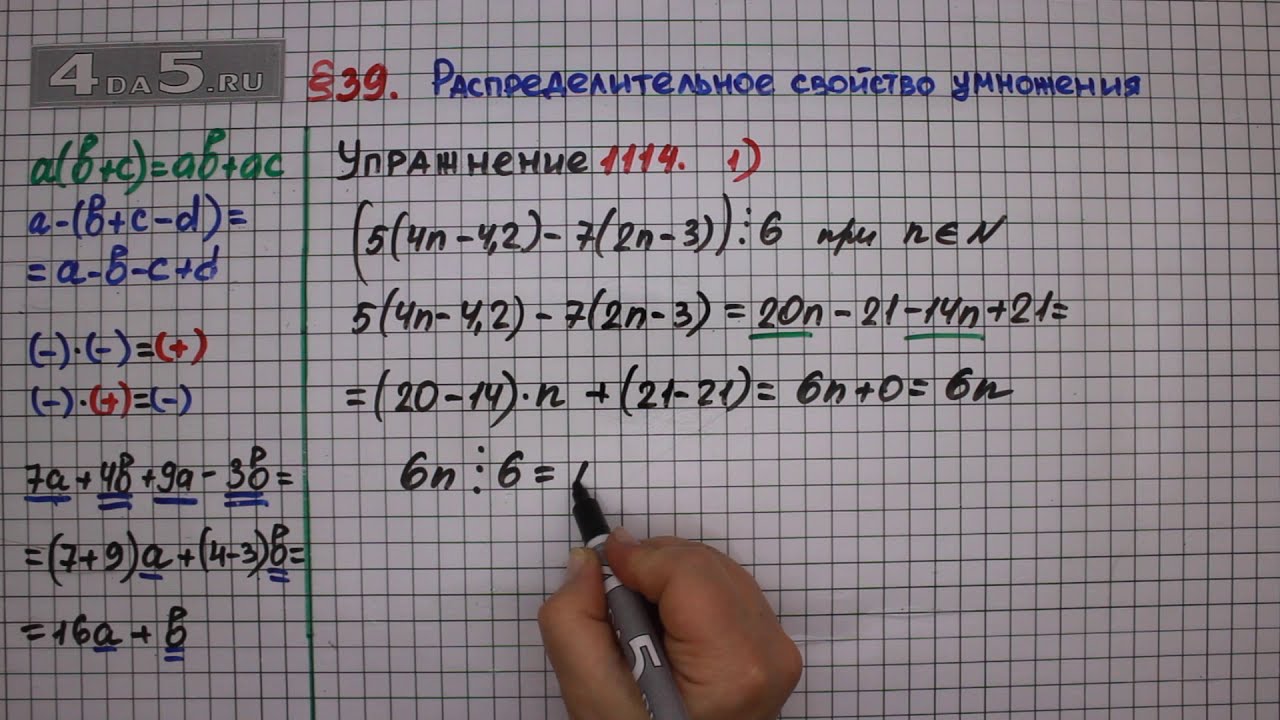 4DA5.RU
§39. Распределительное свойство умножения
a(b+c)=ab+ac
a-(b+c-d)=
=a-b-c+d
(-)·(-)=(+)
(-)·(+)=(-)
7a+4b+9a-3b=
=(7+9)a+(4-3)b=
=16a+b
Упражнение 1114. 1)
(5(4n-4,2)-7(2n-3))⋮6 при n∈N
5(4n-4,2)-7(2n-3)=20n-21-14n+21=
=(20-14)·n+(21-21)=6n+0=6n
6n⋮6=